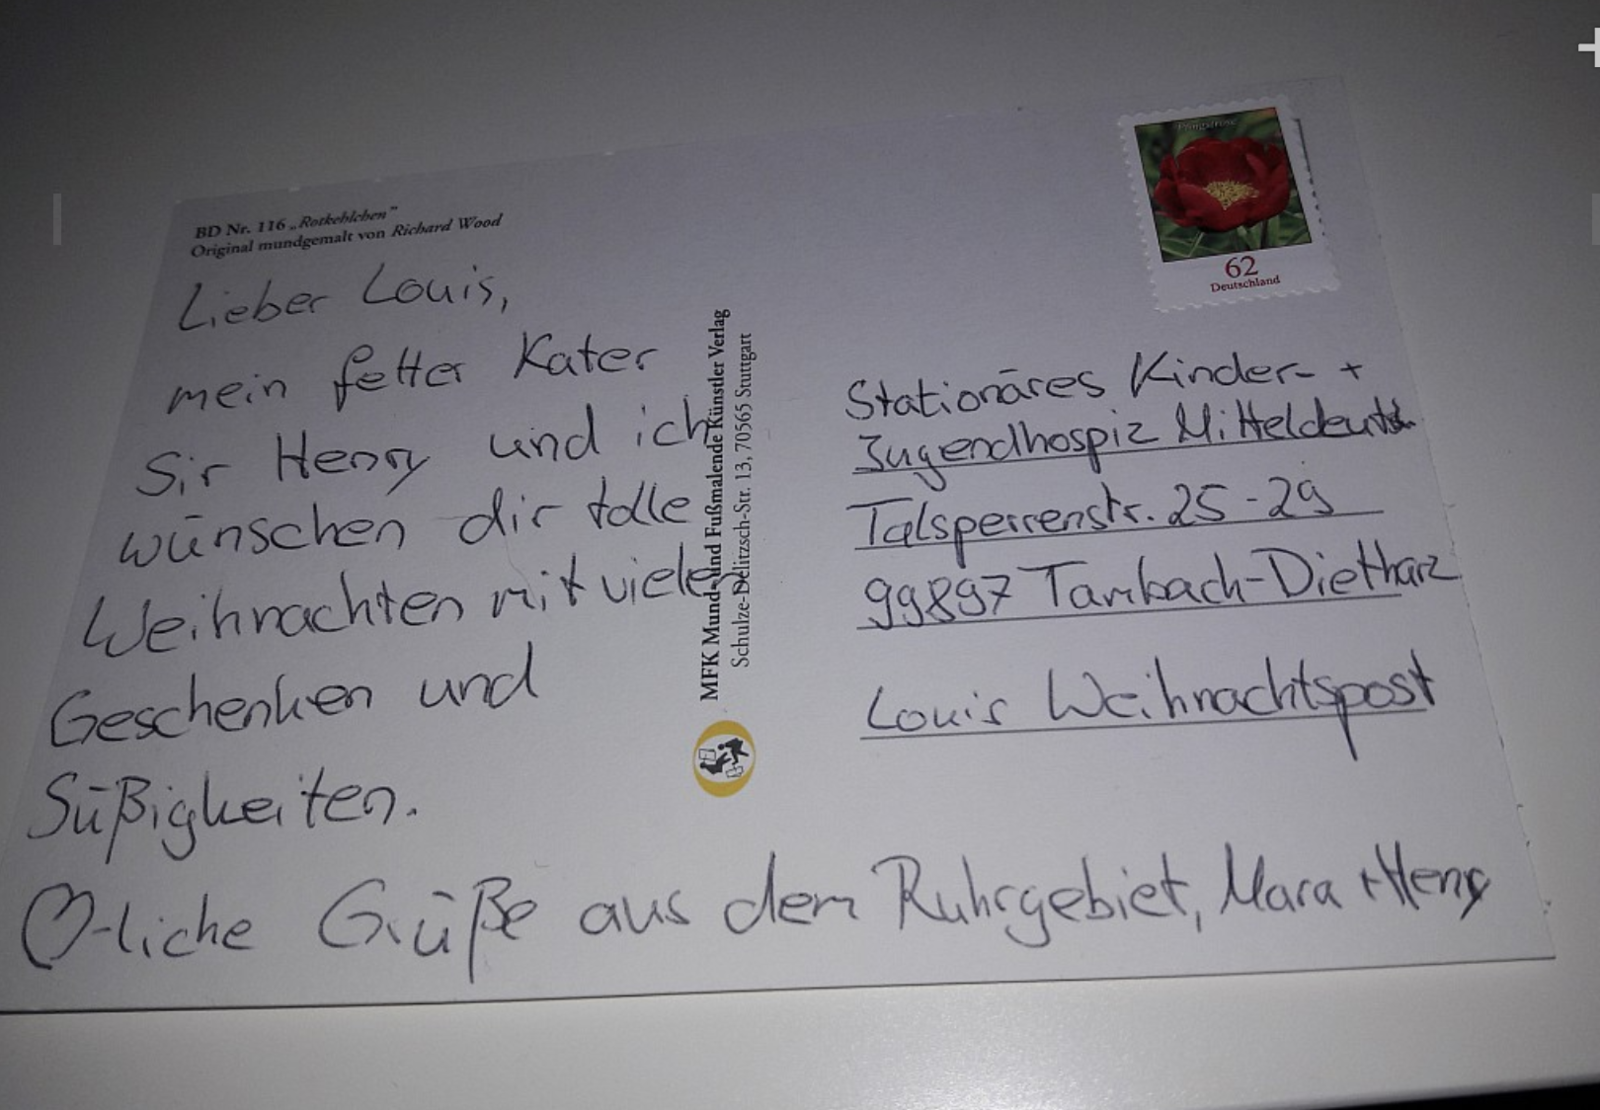 BD Nr. 116 „Rotkehlchen”
Original mundgemalt von Richard Wood
Lieber Louis,
mein fetter Kater
Sir Henry und ich
wünschen dir tolle
Weihnachten mit vielen
Geschenken und
Süßigkeiten.
♡-liche Grüße aus dem Ruhrgebiet, Mara + Henry
MFK Mund- und Fußmalende Künstler Verlag
Schulze-Delitzsch-Str. 13, 70565 Stuttgart
Pfingstrose
62
Deutschland
Stationäres Kinder- +
Jugendhospiz Mitteldeutsch.
Talsperrenstr. 25-29
99897 Tambach-Dietharz
Louis Weihnachtspost